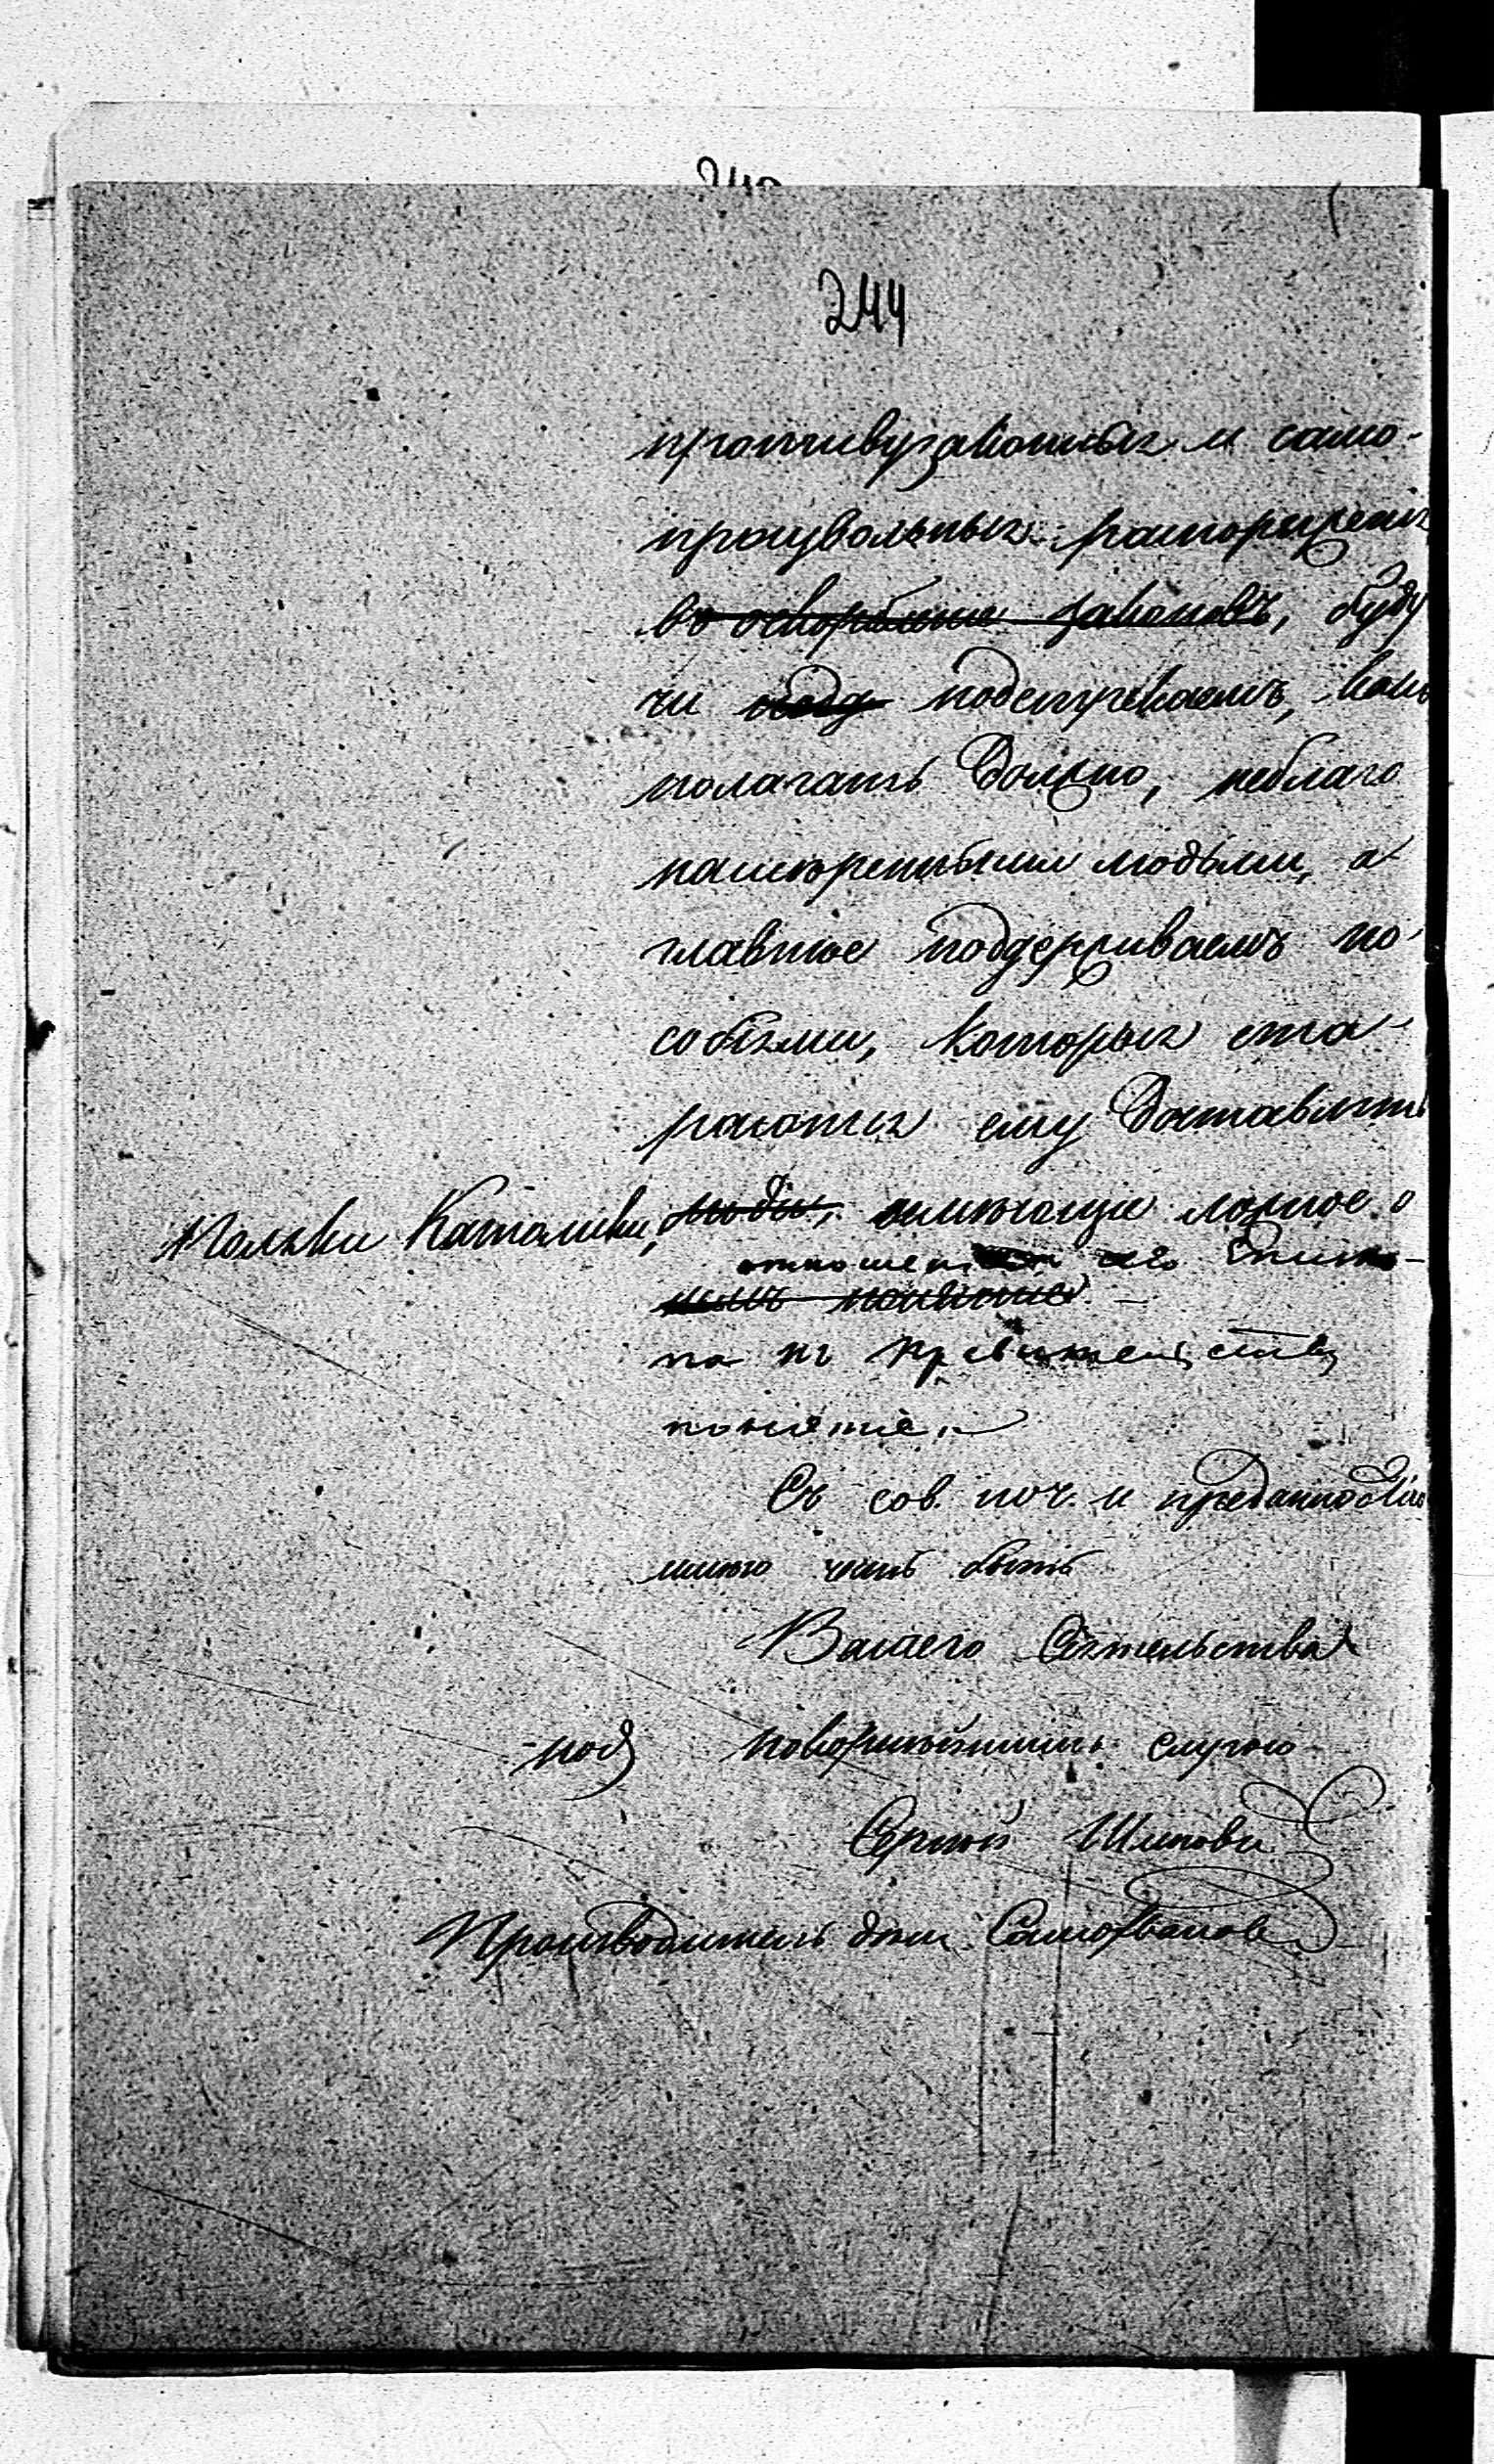 244
противузаконныхъ и само-
произвольныхъ распоряжен
во оскорбленiе законовъ, буду
чи подстрекаемъ, какъ
полагать должно, неблаго
намѣренными людьми, а
главное поддерживаемъ по-
собiями, которыя ста-
раются ему доставлять
Поляки Католики, люди, имѣющiе ложное о
отношенiи его Еписко-
понятiе
па къ правительству
понятiе.
Съ сов. поч. и преданностiю
имѣю честь быть
Вашего Сiятельства
под покорнѣйшимъ слугою
Сергѣй Шиповъ
Производитель дѣлъ